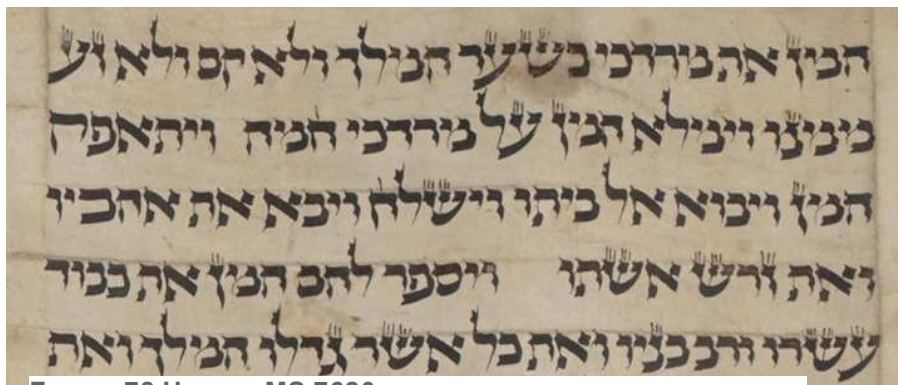 המן את מרדכי בשער המלך ולא קם ולא זע
ממנו וימלא המן על מרדכי חמה ויתאפק
המן ויבוא אל ביתו וישלח ויבא את אהביו
ואת זרש אשתו ויספר להם המן את כבוד
עשרו ורב בניו ואת כל אשר גדלו המלך ואת